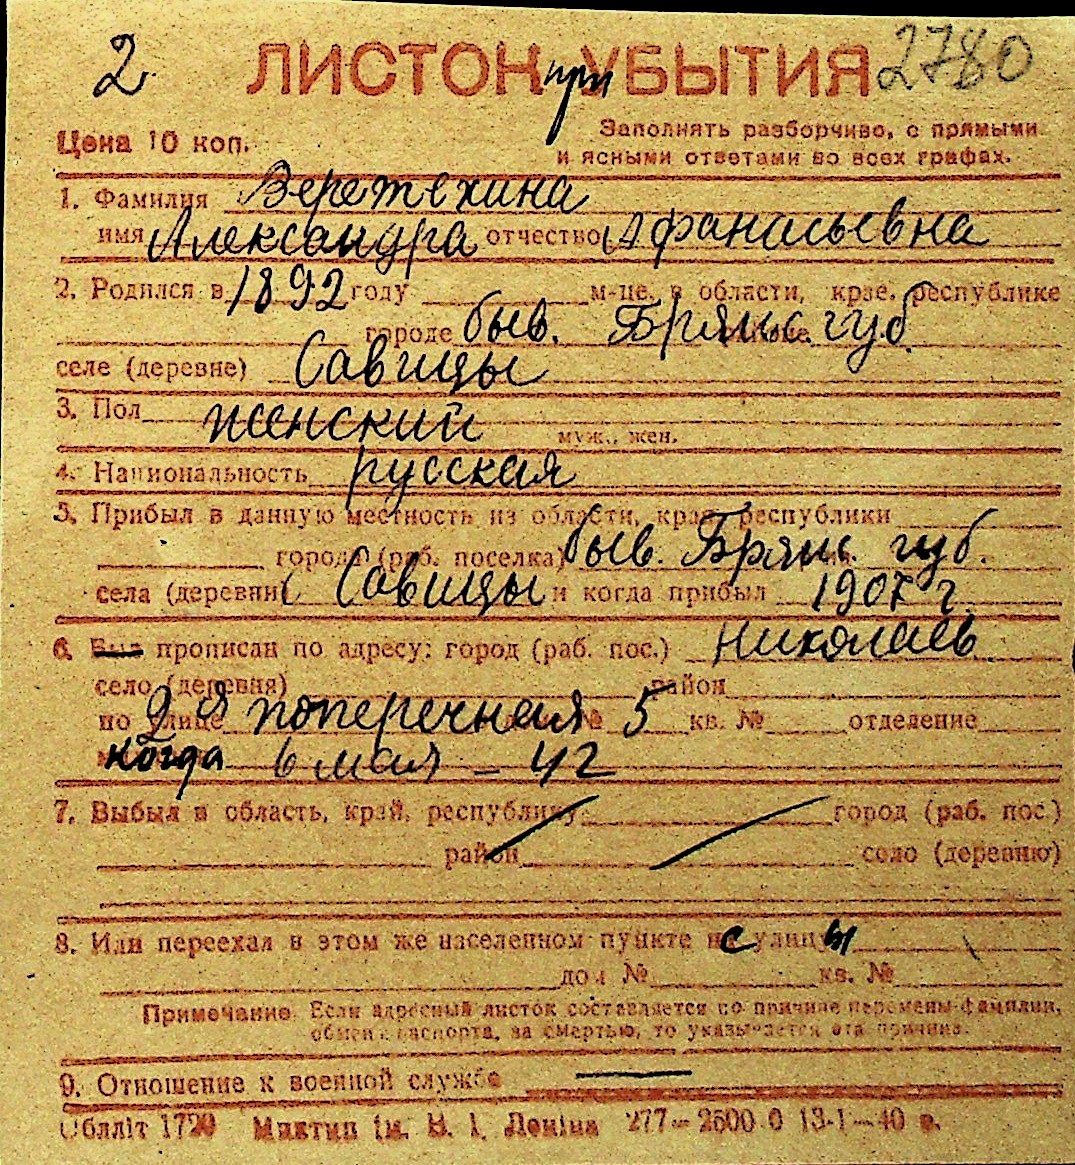 2 ЛИСТОК при УБЫТИЯ 2780
Цена 10 коп. Заполнять разборчиво, с прямыми
и ясными ответами во всех графах.
1. Фамилия Веретехина
имя Александра отчество Афанасьевна
2. Родился в 1892 году м-це, в области, крае, республике
городе быв. Брянс. губ.
селе (деревне) Савицы
3. Пол женский муж., жен.
4. Национальность русская
5. Прибыл в данную местность из области, края, республики
города (раб. поселка) быв. Брянс. губ.
села (деревни) Савицы и когда прибыл 1907 г.
6. Был прописан по адресу: город (раб. пос.) Николаев
село (деревня) район
по улице 2 я поперечная № 5 кв. № отделение
когда 6 мая - 42
7. Выбыл в область, край, республику город (раб. пос.)
район село (деревню)
8. Или переехал в этом же населенном пункте с улицы
дом № кв. №
Примечание. Если адресный листок составляется по причине перемены фамилии,
обмена паспорта, за смертью, то указывается эта причина.
9. Отношение к военной службе —
Обллiт 1720 Миктип iм. В. I. Ленiна 277—2500 0 13-1—40 р.